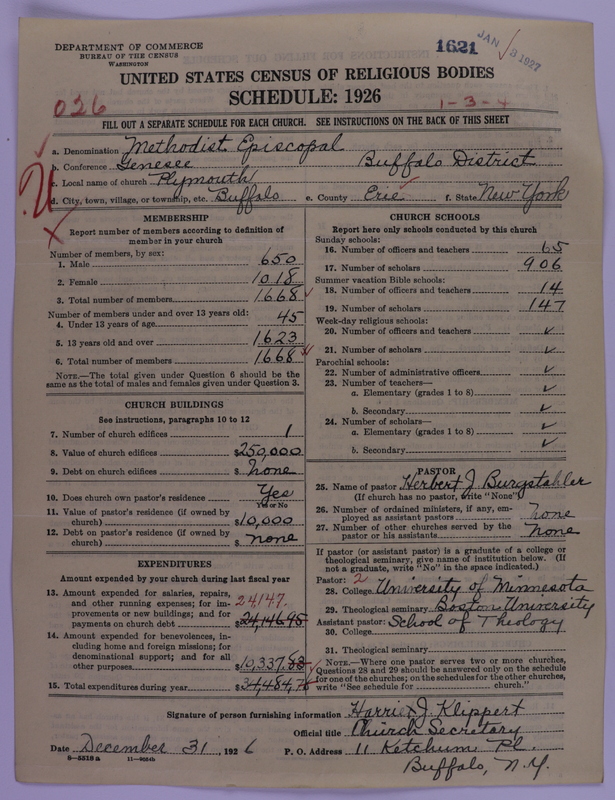 DEPARTMENT OF COMMERCE
BUREAU OF THE CENSUS
WASHINGTON
1621
JAN 3 1927
UNITED STATES CENSUS OF RELIGIOUS BODIES
SCHEDULE: 1926
026
1-3-4
FILL OUT A SEPARATE SCHEDULE FOR EACH CHURCH. SEE INSTRUCTIONS ON THE BACK OF THIS SHEET
a. Denomination Methodist Episcopal
b. Conference Genesee Buffalo District
c. Local name of church Plymouth
d. City, town, village, or township, etc. Buffalo e. County Erie f. State New York
MEMBERSHIP
Report number of members according to definition of
member in your church
Number of members, by sex:
1. Male 650
2. Female 1018
3. Total number of members 1668
Number of members under and over 13 years old:
4. Under 13 years of age 45
5. 13 years old and over 1623
6. Total number of members 1668
NOTE.—The total given under Question 6 should be
same as the total of males and females given under Question 3.
CHURCH BUILDINGS
See instructions, paragraphs 10 to 12
7. Number of church edifices 1
8. Value of church edifices $250,000
9. Debt on church edifices $ none
10. Does church own pastor's residence Yes
Yes or No
11. Value of pastor's residence (if owned by
church) $10,000
12. Debt on pastor's residence (if owned by
church) $ none
EXPENDITURES
Amount expended by your church during last fiscal year
13. Amount expended for salaries, repairs,
and other running expenses; for im-
provements or new buildings; and for
payments on church debt 24147. $24,146.95
14. Amount expended for benevolences, in-
cluding home and foreign missions; for
denominational support; and for all
other purposes $10,337.83
15. Total expenditures during year $34,484.78
CHURCH SCHOOLS
Report here only schools conducted by this church
Sunday schools:
16. Number of officers and teachers 65
17. Number of scholars 906
Summer vacation Bible schools:
18. Number of officers and teachers 14
19. Number of scholars 147
Week-day religious schools:
20. Number of officers and teachers ✓
21. Number of scholars ✓
Parochial schools:
22. Number of administrative officers ✓
23. Number of teachers—
a. Elementary (grades 1 to 8) ✓
b. Secondary ✓
24. Number of scholars—
a. Elementary (grades 1 to 8) ✓
b. Secondary ✓
PASTOR
25. Name of pastor Herbert J. Burgstahler
(If church has no pastor, write "None")
26. Number of ordained ministers, if any, em-
ployed as assistant pastors none
27. Number of other churches served by the
pastor or his assistants none
If pastor (or assistant pastor) is a graduate of a college or
theological seminary, give name of institution below. (If
not a graduate, write "No" in the space indicated.)
Pastor: 2
28. College University of Minnesota
29. Theological seminary Boston University
Assistant pastor: School of Theology
30. College
31. Theological seminary
NOTE.—Where one pastor serves two or more churches,
Questions 28 and 29 should be answered only on the schedule
for one of the churches; on the schedules for the other churches,
write "See schedule for church."
Signature of person furnishing information Harriet J. Klippert
Official title Church Secretary
Date December 31, 1926 P. O. Address 11 Ketchum Pl.
Buffalo, N.Y.